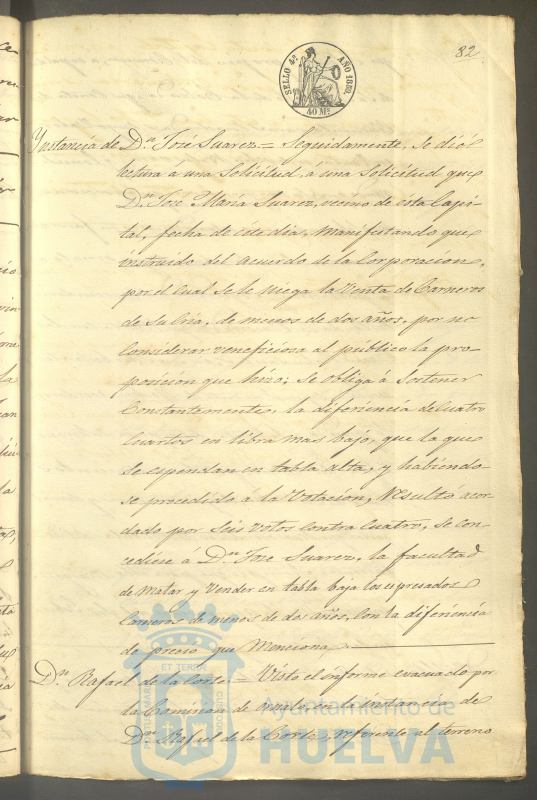 82
SELLO 4º AÑO 1862.
40 Ms
Ynstancia de Dn José Suarez = Seguidamente, se dió
lectura a una Solicitud, á una solicitud que
Dn José María Suarez, vecino de esta Capi-
tal, fecha de este dia, manifestando que
instruido del acuerdo de la Corporacion,
por el cual se le niega la Venta de Carneros
de su cria, de menos de dos años, por no
considerar veneficiosa al público la pro
posicion que hizo; se obliga á Sostener
Constantemente, la diferiencia de Cuatro
Cuartos en libra mas bajo, que la que
se espendan en tabla alta, y habiendo
se procedido á la Votacion, Resultó acor-
dado por Seis votos contra Cuatro, se con-
cediese á Dn José Suarez, la facultad
de Matar y Vender en tabla baja los espresados
Carneros de menos de dos años, con la diferiencia
de precio que Menciona
Dn Rafael de la Corte = Visto el informe evacuado por
la Comision de ornato, en la instancia de
Dn Rafael de la Corte, referente al terreno
PORTUS MARIS ET TERRAE CUSTODIA
Ayuntamiento de
HUELVA